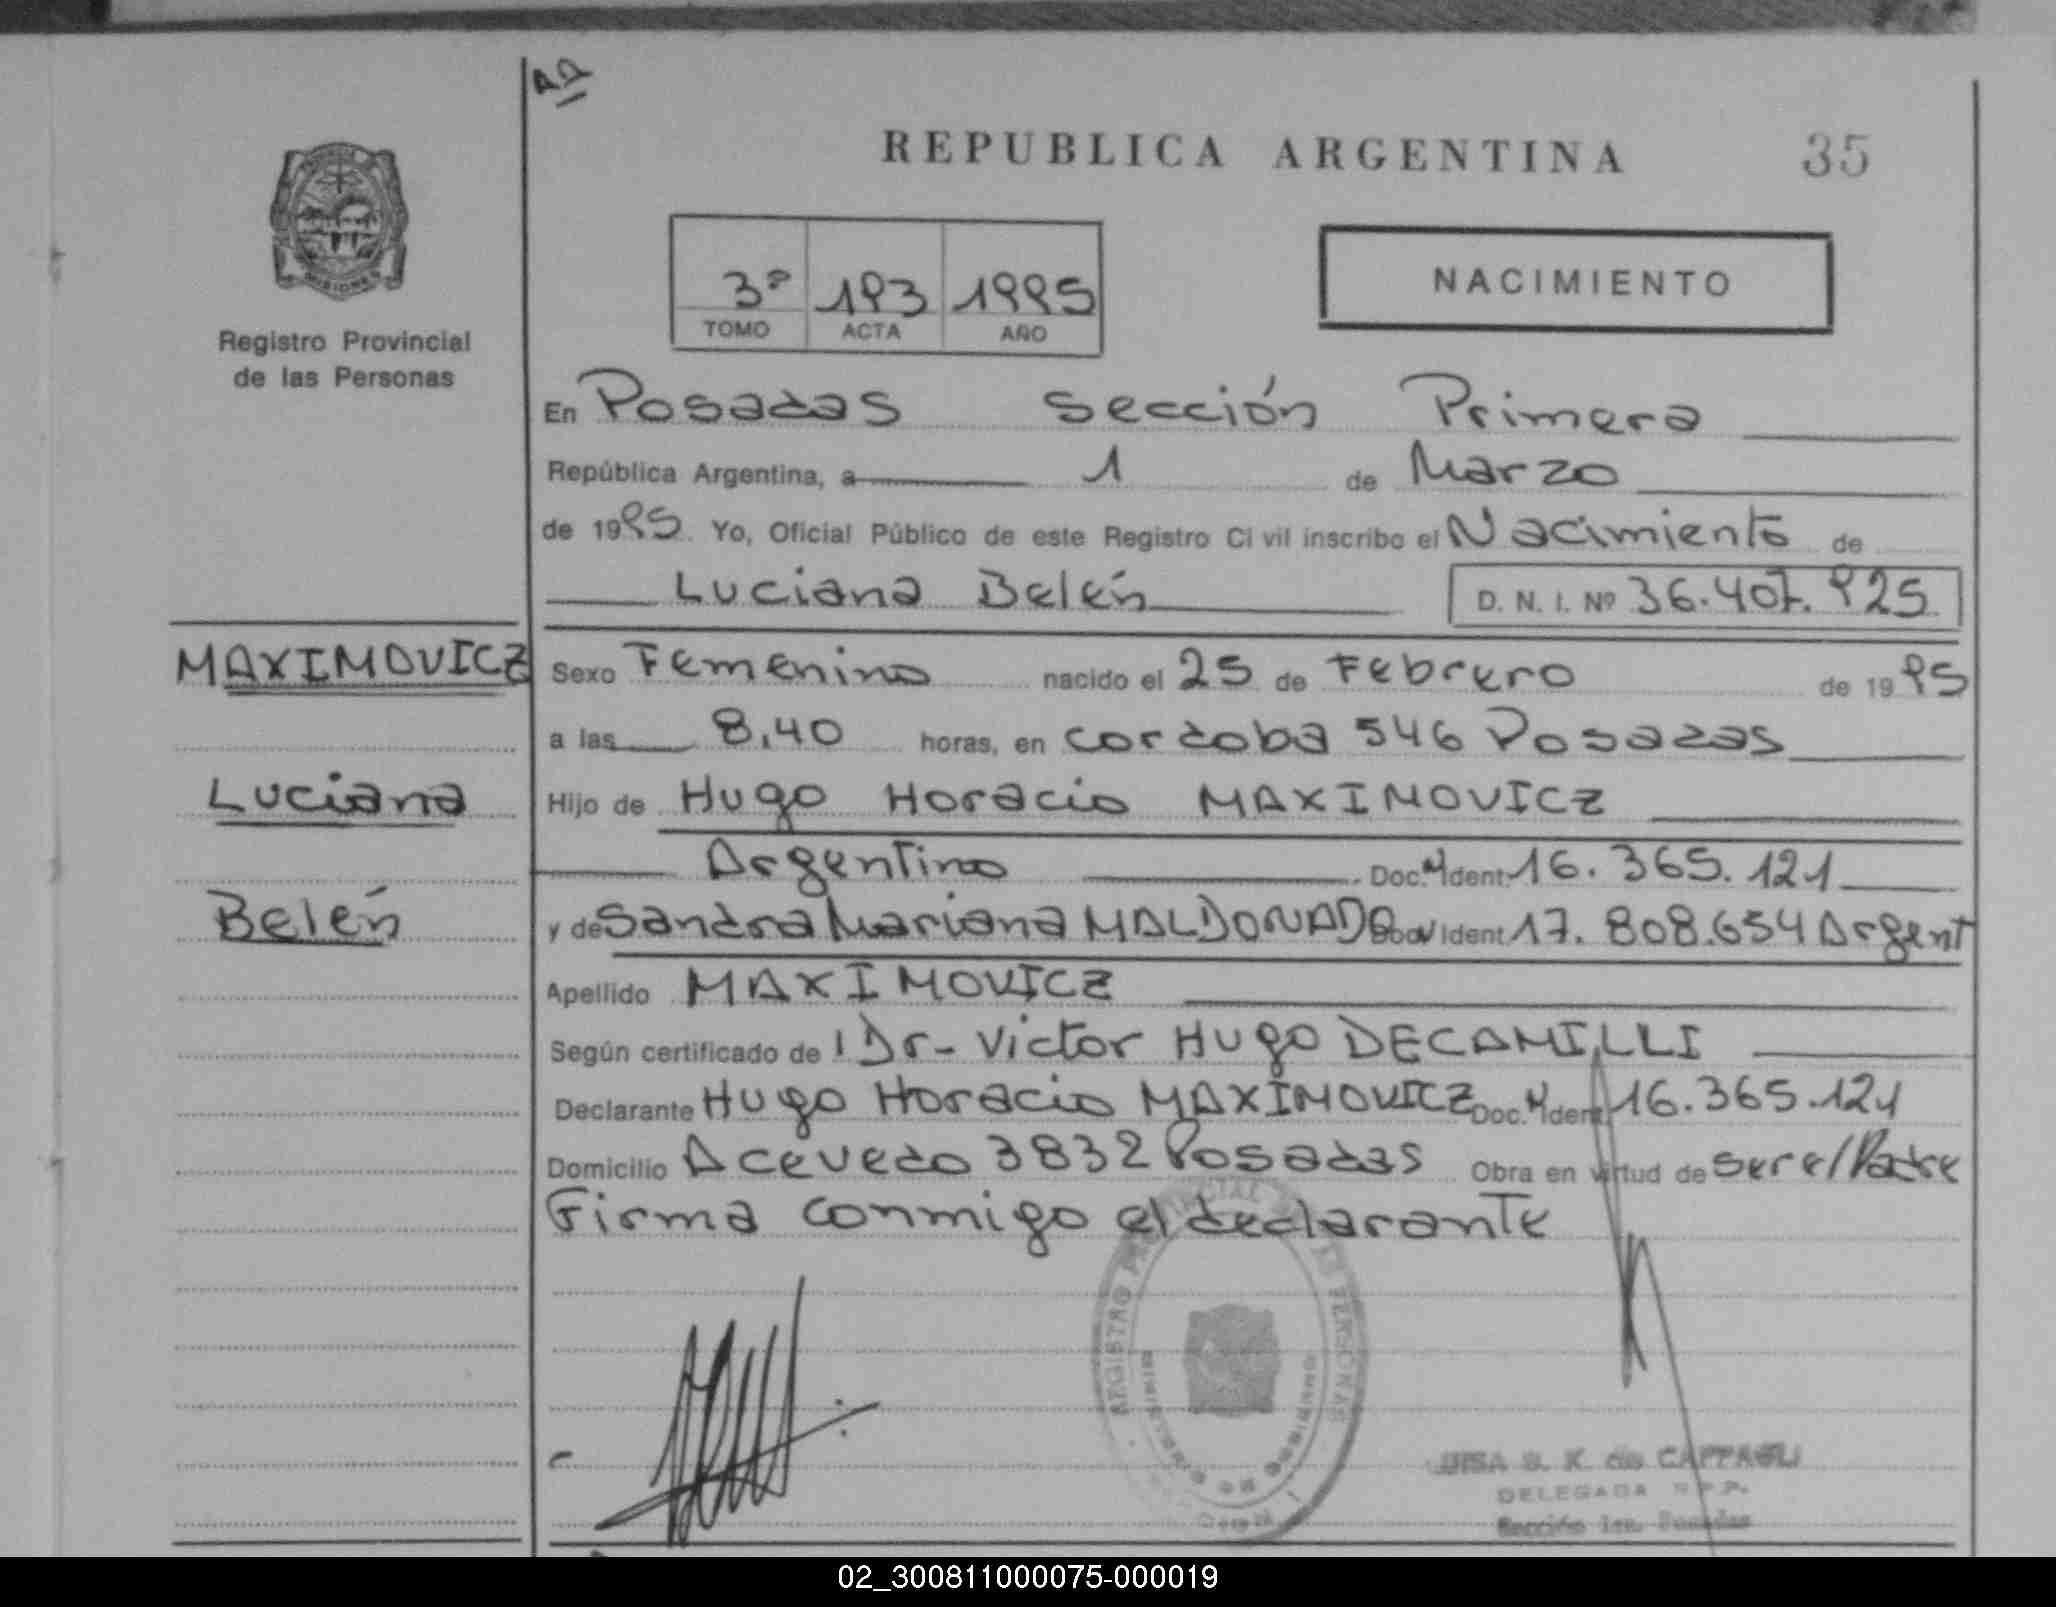 REPUBLICA ARGENTINA 35
NACIMIENTO
3º 193 1995
TOMO ACTA AÑO
Registro Provincial
de las Personas
En Posadas Sección Primera
República Argentina, a 1 de Marzo
de 1995. Yo, Oficial Público de este Registro Civil inscribo el Nacimiento de
Luciana Belén D. N. I. Nº 36.407.925
MAXIMOVICZ
Luciana
Belén
Sexo Femenino nacido el 25 de Febrero de 1995
a las 8,40 horas, en cordoba 546 Posadas
Hijo de Hugo Horacio MAXIMOVICZ
Argentino Doc. Ident. 16.365.121
y de Sandra Mariana MALDONADO Doc. Ident. 17.808.654 Argent
Apellido MAXIMOVICZ
Según certificado de l Dr- Victor Hugo DECAMILLI
Declarante Hugo Horacio MAXIMOVICZ Doc. Ident. 16.365.121
Domicilio Acevedo 3832 Posadas Obra en virtud de ser el Padre
Firma conmigo el declarante
REGISTRO PROVINCIAL DE LAS PERSONAS
S. K. de CAPPAGLI
DELEGADA R.P.P.
Sección 1ra. Posadas
02_300811000075-000019